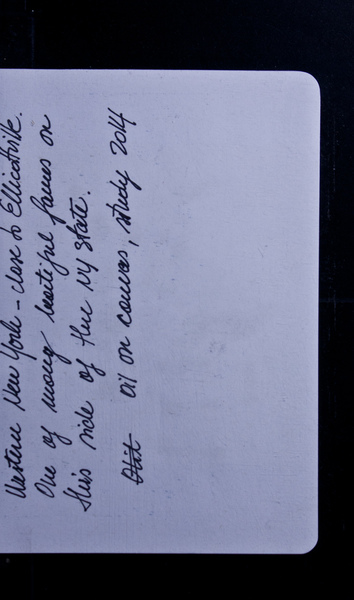 Western New York – close to Ellicottville.
One of many beautiful farms on
this side of the NY State.
oil on canvas, study 2014